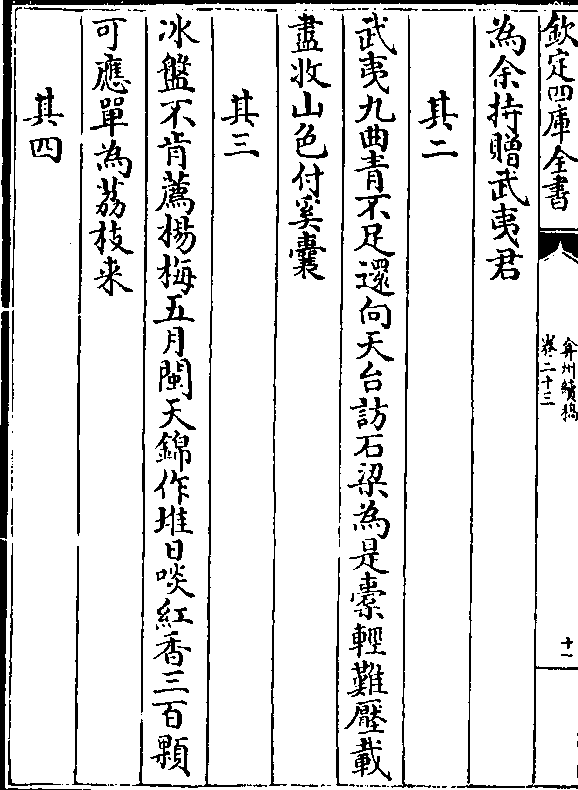 欽定四庫全書
弇州續稿
卷二十三
十一
為余持贈武夷君
其二
武夷九曲青不足還向天台訪石梁為是橐輕難壓載
盡收山色付奚囊
其三
冰盤不肯薦楊梅五月閩天錦作堆日啖紅香三百顆
可應單為荔枝来
其四